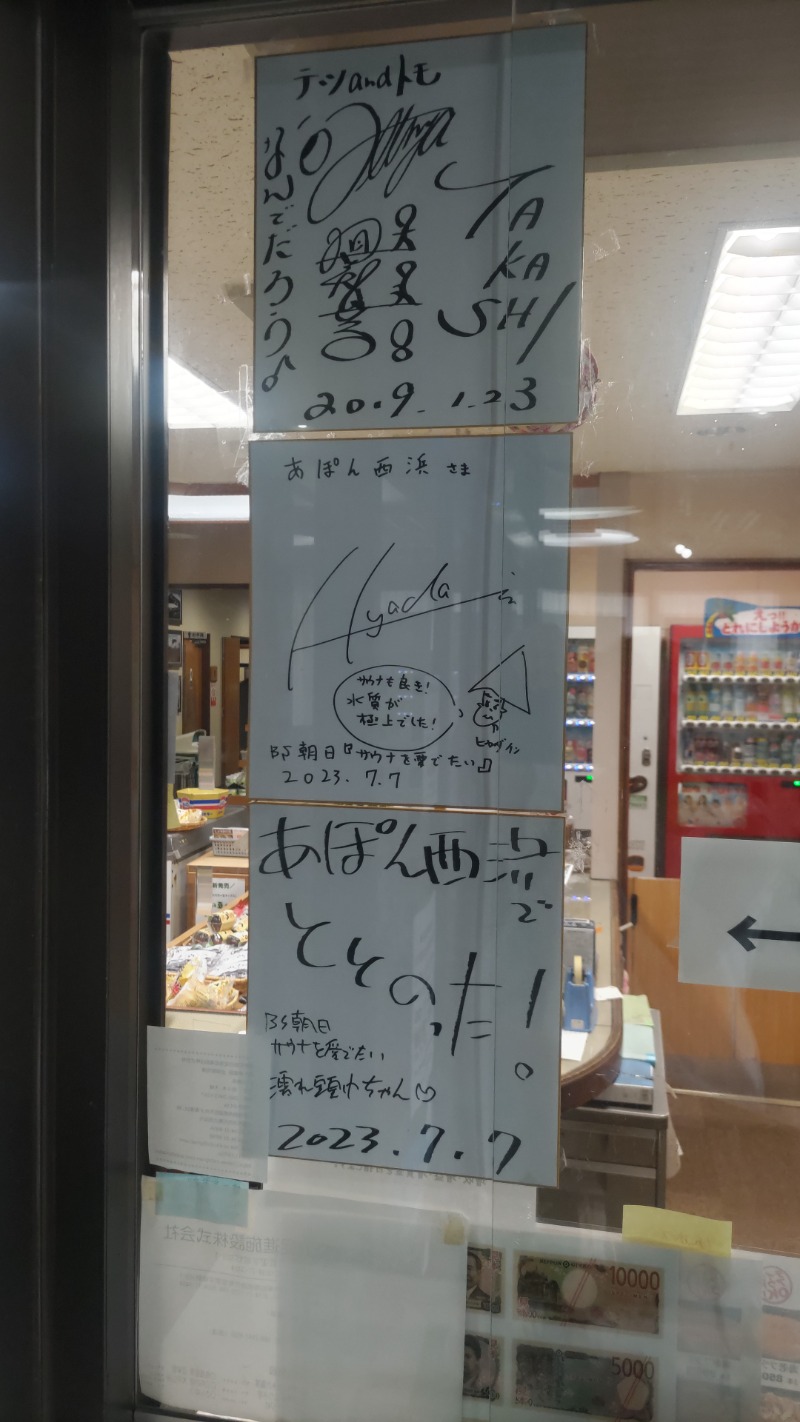 テツandトモ
なんでだろう♪
TA
KA
SHI
20.9.1.23
あぽん西浜さま
Hyadain
サウナも良き!
水質が
極上でした!
ヒャダイン
BS朝日『サウナを愛でたい』
2023.7.7
あぽん西浜で
ととのった!
BS朝日
サウナを愛でたい
濡れ頭巾ちゃん♡
2023.7.7
えっ!!
どれにしようか
←
10000
5000